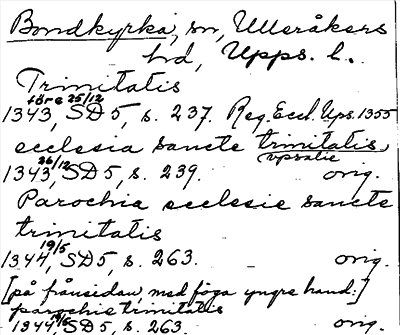 Bondkyrka, sn, Ulleråkers
hd, Upps. l.
Trinitatis
före 25/12
1343, SD 5, s. 237. Reg. Eccl. Ups. 1355
ecclesia sancte trinitatis
vpsalie
26/12
1343, SD 5, s. 239. orig.
Parochia ecclesie sancte
trinitatis
19/5
1344, SD 5, s. 263. orig.
[på frånsidan, med föga yngre hand:]
parochie trinitatis
19/5
1344, SD 5, s. 263. orig.